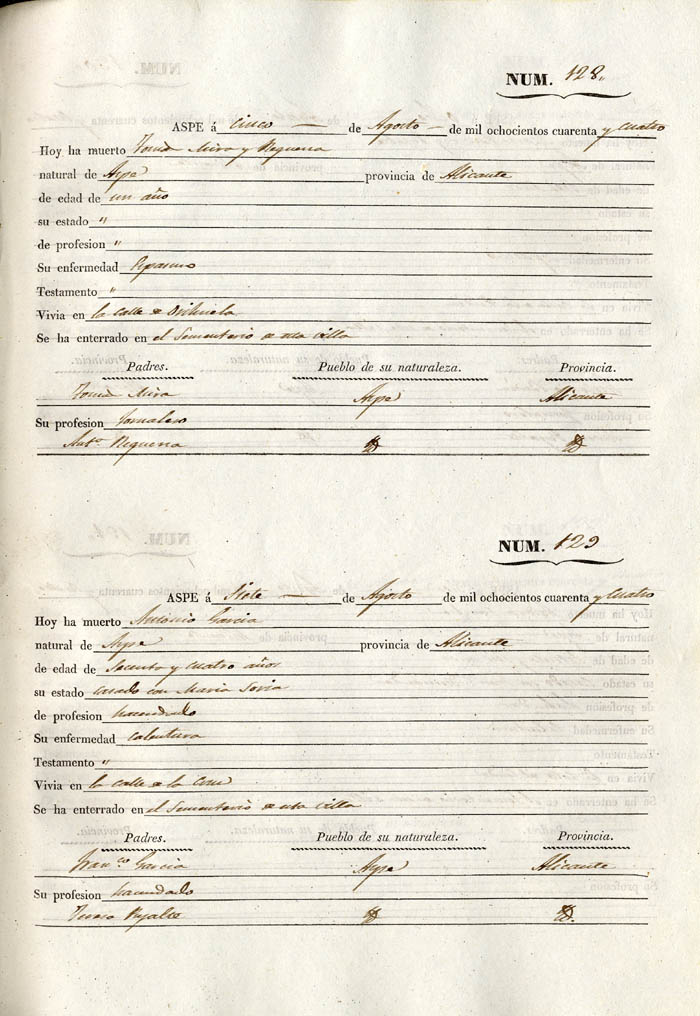 NUM. 128.
ASPE á Cinco de Agosto de mil ochocientos cuarenta y Cuatro
Hoy ha muerto Tomás Mira y Requena
natural de Aspe provincia de Alicante
de edad de un año
su estado "
de profesion "
Su enfermedad Espasmo
Testamento "
Vivia en la calle de Orihuela
Se ha enterrado en el Sementerio de esta villa
Padres. Pueblo de su naturaleza. Provincia.
Tomás Mira Aspe Alicante
Su profesion Jornalero
Anta. Requena
NUM. 129
ASPE á Siete de Agosto de mil ochocientos cuarenta y Cuatro
Hoy ha muerto Antonio Garcia
natural de Aspe provincia de Alicante
de edad de Secenta y cuatro años
su estado casado con Maria Soria
de profesion hacendado
Su enfermedad calentura
Testamento "
Vivia en la calle de la Cruz
Se ha enterrado en el Sementerio de esta villa
Padres. Pueblo de su naturaleza. Provincia.
Franco. Garcia Aspe Alicante
Su profesion hacendado